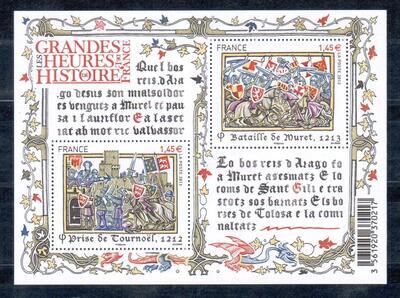 LES GRANDES HEURES DE L'HISTOIRE DE FRANCE
Quel bos
reis dArago
go desus son mialsoldor
es vengutz a Muret et pau
za i lauriflor E a catseira
et ab mot ric valvassor
FRANCE 1,45€
LA POSTE 2012
Bataille de Muret, 1213
FRANCE 1,45€
Prise de Tournoël, 1212
Lo bos reis dArago fo
a Muret asesmatz E lo
coms de Sant Gili e tra
stotz sos barnatz Els bor
zes de Tolosa e la comi
naltatz
3 561920 370217